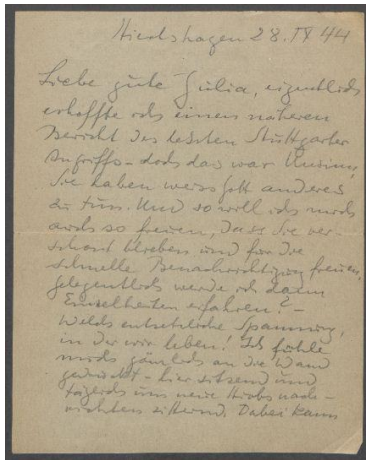 28. IX 44
Liebe gute Julia, eigentlich
erhoffte ich einen näheren
Bericht des letzten Stuttgarter
Angriffs - doch das war Unsinn,
Sie haben weiss Gott anderes
zu tun. Und so will ich mich
auch so freuen, dass Sie ver-
schont blieben und für die
schnelle Benachrichtigung freuen,
gelegentlich werde ich dann
Einzelheiten erfahren? -
Welch entsetzliche Spannung,
in der wir leben! Ich fühle
mich gänzlich an die Wand
gedrückt - hier sitzend und
täglich um neue Hiobsnach-
richten zitternd. Dabei kann